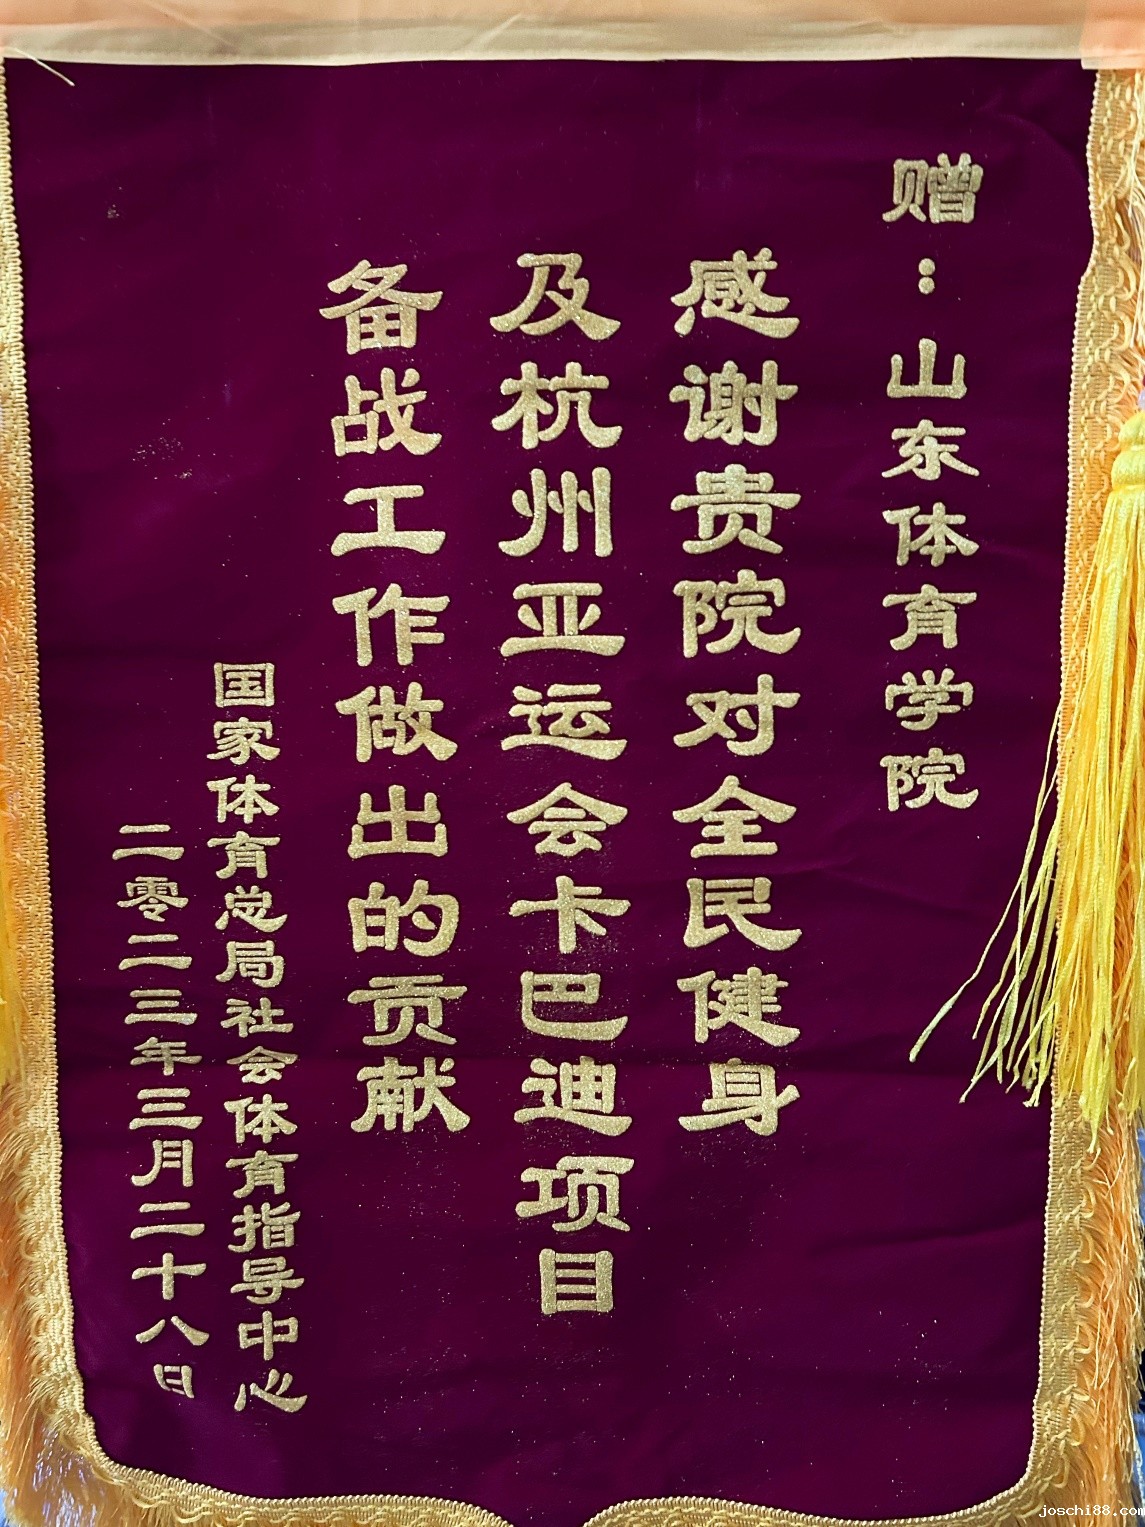 赠：山东体育学院
感谢贵院对全民健身
及杭州亚运会卡巴迪项目
备战工作做出的贡献
国家体育总局社会体育指导中心
二零二三年三月二十八日
joschi88.com